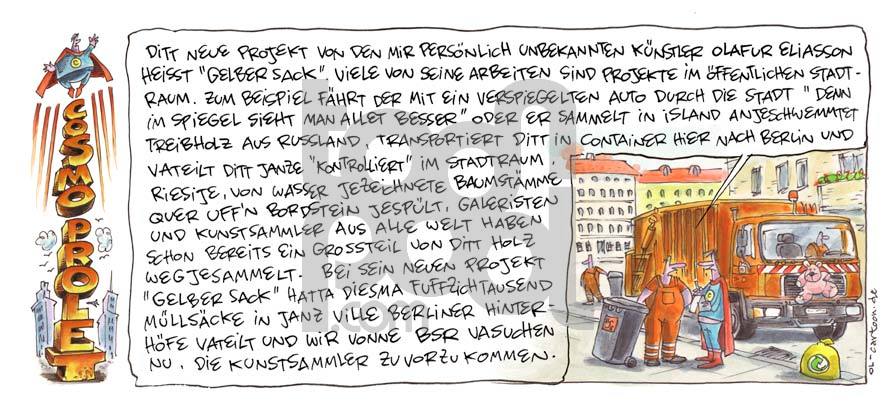 COSMOPROLET
DITT NEUE PROJEKT VON DEN MIR PERSÖNLICH UNBEKANNTEN KÜNSTLER OLAFUR ELIASSON
HEISST "GELBER SACK". VIELE VON SEINE ARBEITEN SIND PROJEKTE IM ÖFFENTLICHEN STADT-
RAUM. ZUM BEISPIEL FÄHRT DER MIT EIN VERSPIEGELTEN AUTO DURCH DIE STADT "DENN
IM SPIEGEL SIEHT MAN ALLET BESSER" ODER ER SAMMELT IN ISLAND ANJESCHWEMMTET
TREIBHOLZ AUS RUSSLAND, TRANSPORTIERT DITT IN CONTAINER HIER NACH BERLIN UND
VATEILT DITT JANZE "KONTROLLIERT" IM STADTRAUM.
RIESIJE, VON WASSER JEZEICHNETE BAUMSTÄMME
QUER UFF'N BORDSTEIN JESPÜLT. GALERISTEN
UND KUNSTSAMMLER AUS ALLE WELT HABEN
SCHON BEREITS EIN GROSSTEIL VON DITT HOLZ
WEGJESAMMELT. BEI SEIN NEUEN PROJEKT
"GELBER SACK" HATTA DIESMA FUFFZICHTAUSEND
MÜLLSÄCKE IN JANZ VILLE BERLINER HINTER-
HÖFE VATEILT UND WIR VONNE BSR VASUCHEN
NU, DIE KUNSTSAMMLER ZUVORZUKOMMEN.
OL-cartoon.de
toonpool.com